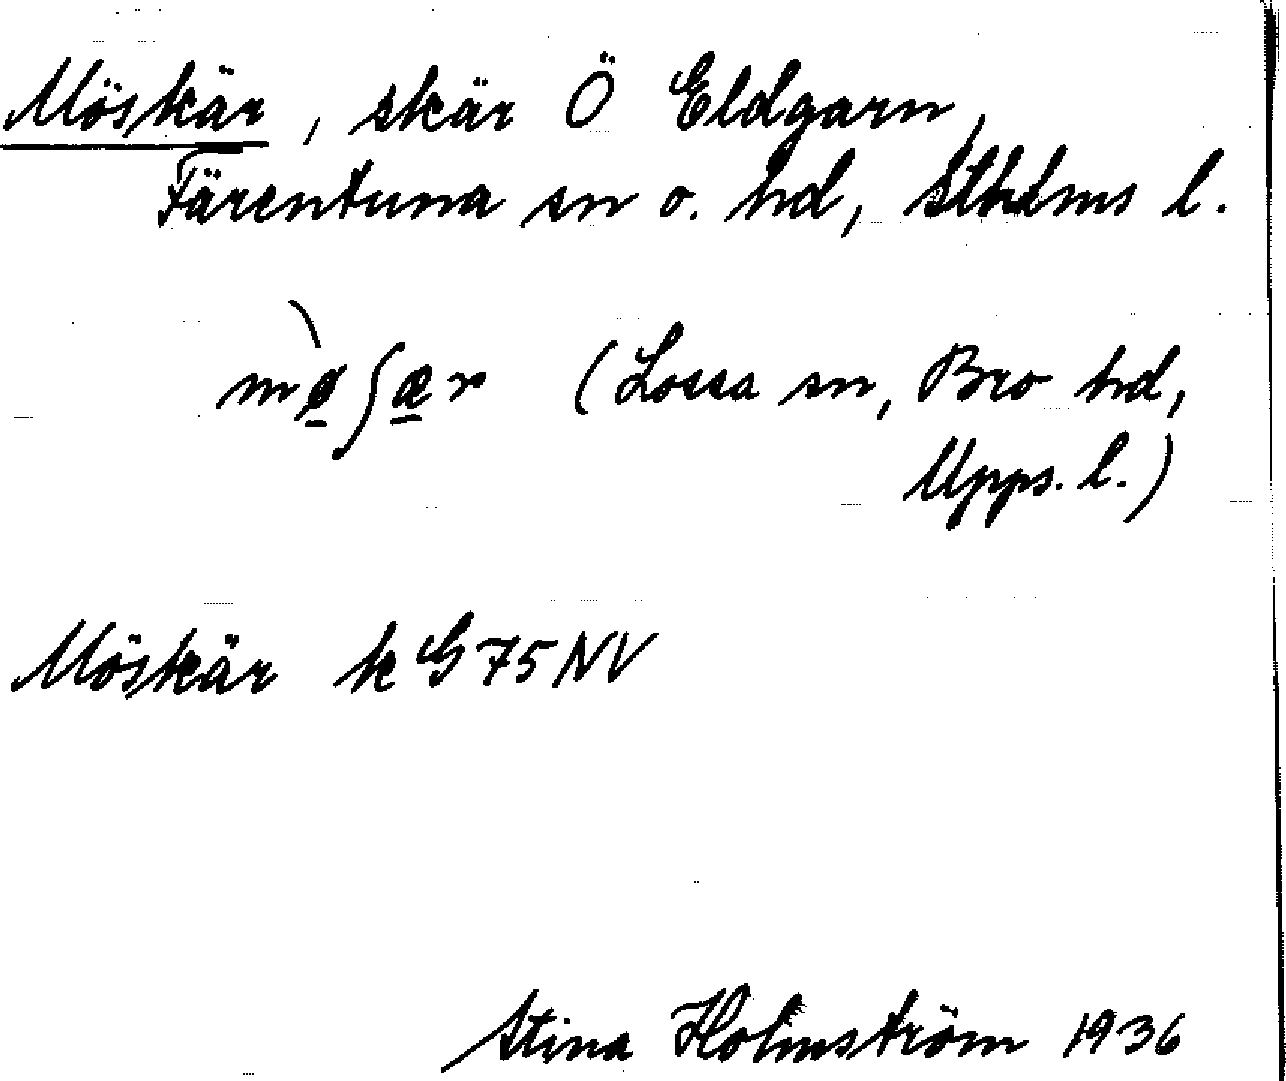 Möskär, skär Ö Eldgarn,
Färentuna sn o. hd, Sthlms l.
mø̀ʃær (Lossa sn, Bro hd,
Upps. l.)
Möskär k G 75 NV
Stina Holmström 1936